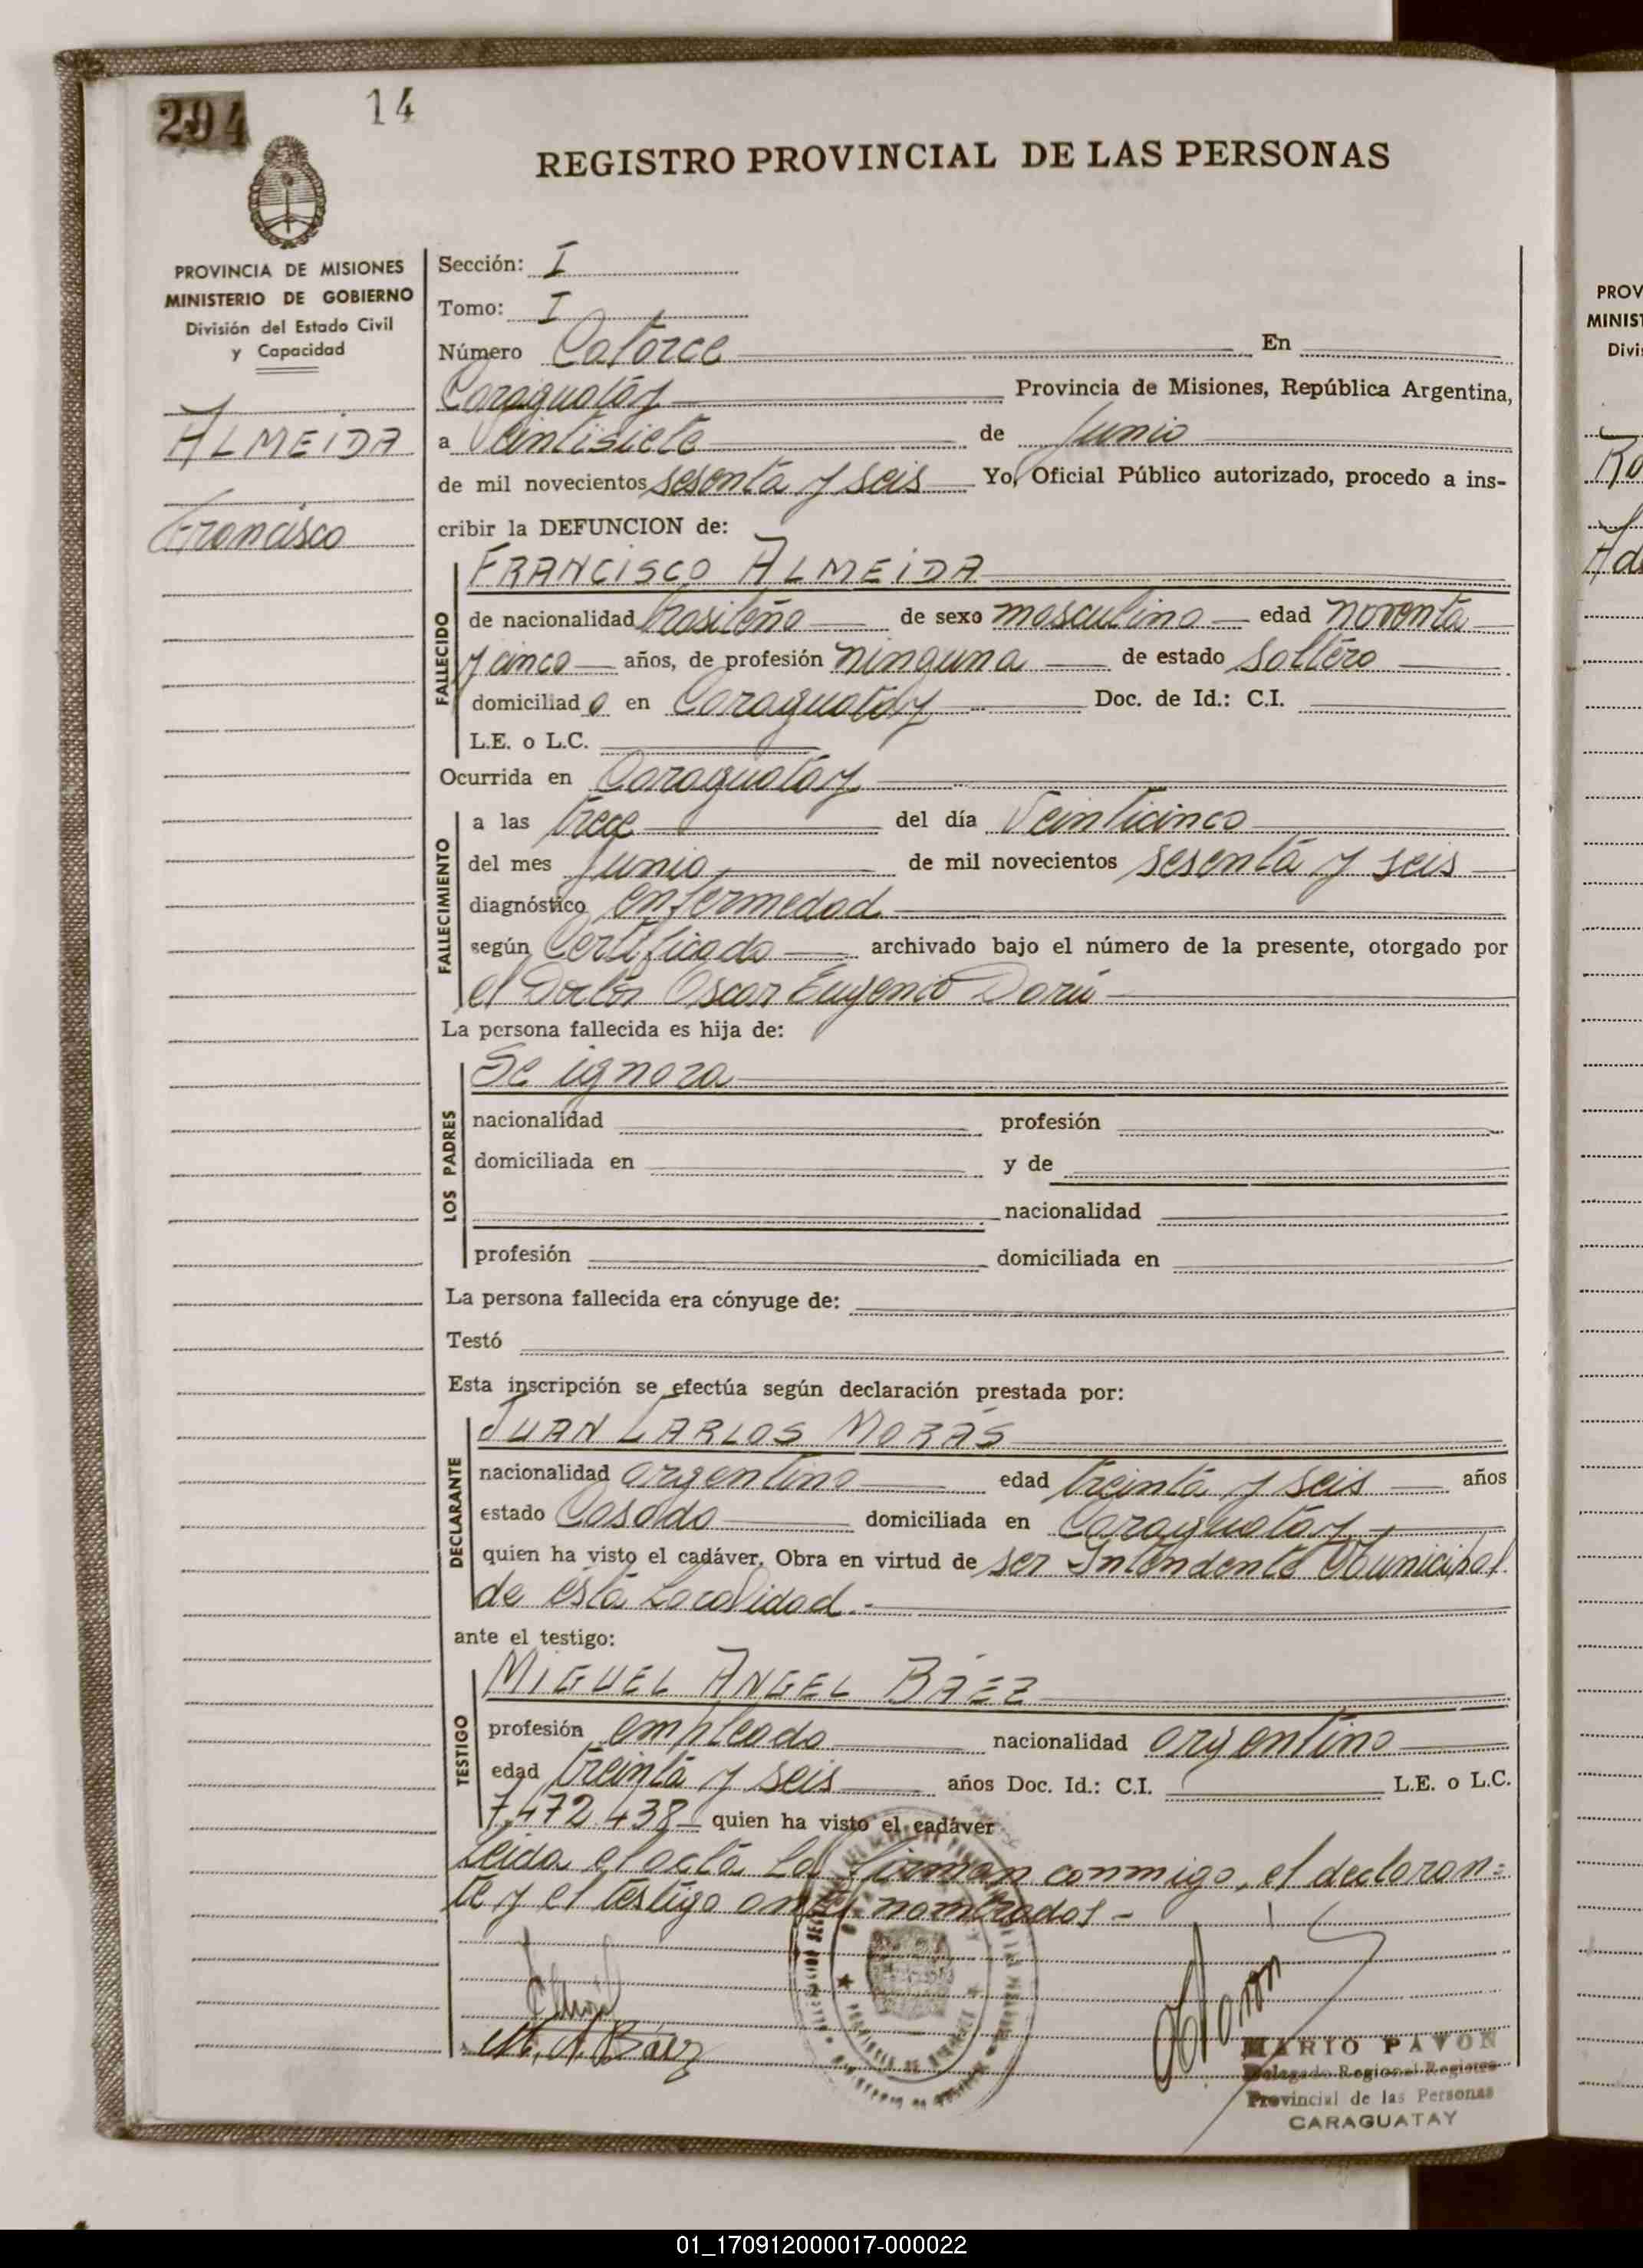 294
14
REGISTRO PROVINCIAL DE LAS PERSONAS
PROVINCIA DE MISIONES
MINISTERIO DE GOBIERNO
División del Estado Civil
y Capacidad
ALMEIDA
Francisco
Sección: I
Tomo: I
Número Catorce En
Caraguatay Provincia de Misiones, República Argentina,
a Veintisiete de Junio
de mil novecientos sesenta y seis Yo, Oficial Público autorizado, procedo a ins-
cribir la DEFUNCION de:
FALLECIDO
FRANCISCO ALMEIDA
de nacionalidad brasileño de sexo masculino edad noventa
y cinco años, de profesión ninguna de estado soltero
domiciliado en Caraguatay Doc. de Id.: C.I.
L.E. o L.C.
Ocurrida en Caraguatay
FALLECIMIENTO
a las trece del día Veinticinco
del mes Junio de mil novecientos sesenta y seis
diagnóstico enfermedad
según Certificado archivado bajo el número de la presente, otorgado por
el Doctor Oscar Eugenio Darú
La persona fallecida es hija de:
LOS PADRES
Se ignora
nacionalidad profesión
domiciliada en y de
nacionalidad
profesión domiciliada en
La persona fallecida era cónyuge de:
Testó
Esta inscripción se efectúa según declaración prestada por:
DECLARANTE
JUAN CARLOS MORÁS
nacionalidad argentino edad treinta y seis años
estado Casado domiciliada en Caraguatay
quien ha visto el cadáver. Obra en virtud de ser Intendente Municipal
de ésta Localidad.-
ante el testigo:
TESTIGO
MIGUEL ANGEL BÁEZ
profesión empleado nacionalidad argentino
edad treinta y seis años Doc. Id.: C.I. L.E. o L.C.
7.472.438 quien ha visto el cadáver
Leida el acta la firman conmigo, el declaran=
te y el testigo antes nombrados -
M. A. Báez
MARIO PAVON
Delegado Regional Registro
Provincial de las Personas
CARAGUATAY
PROV
MINIST
Divi
01_170912000017-000022